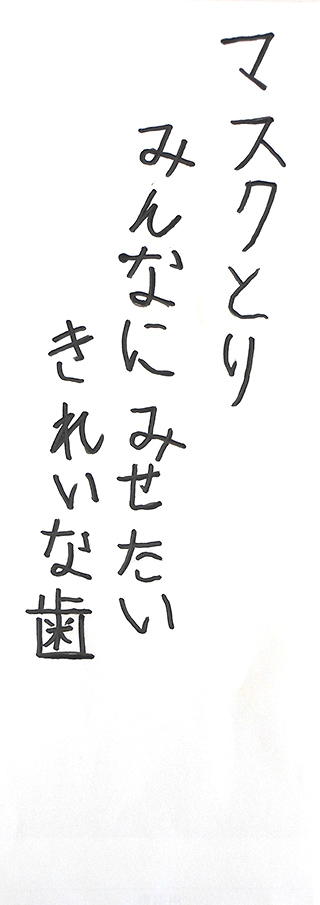 マスクとり
みんなに みせたい
きれいな歯